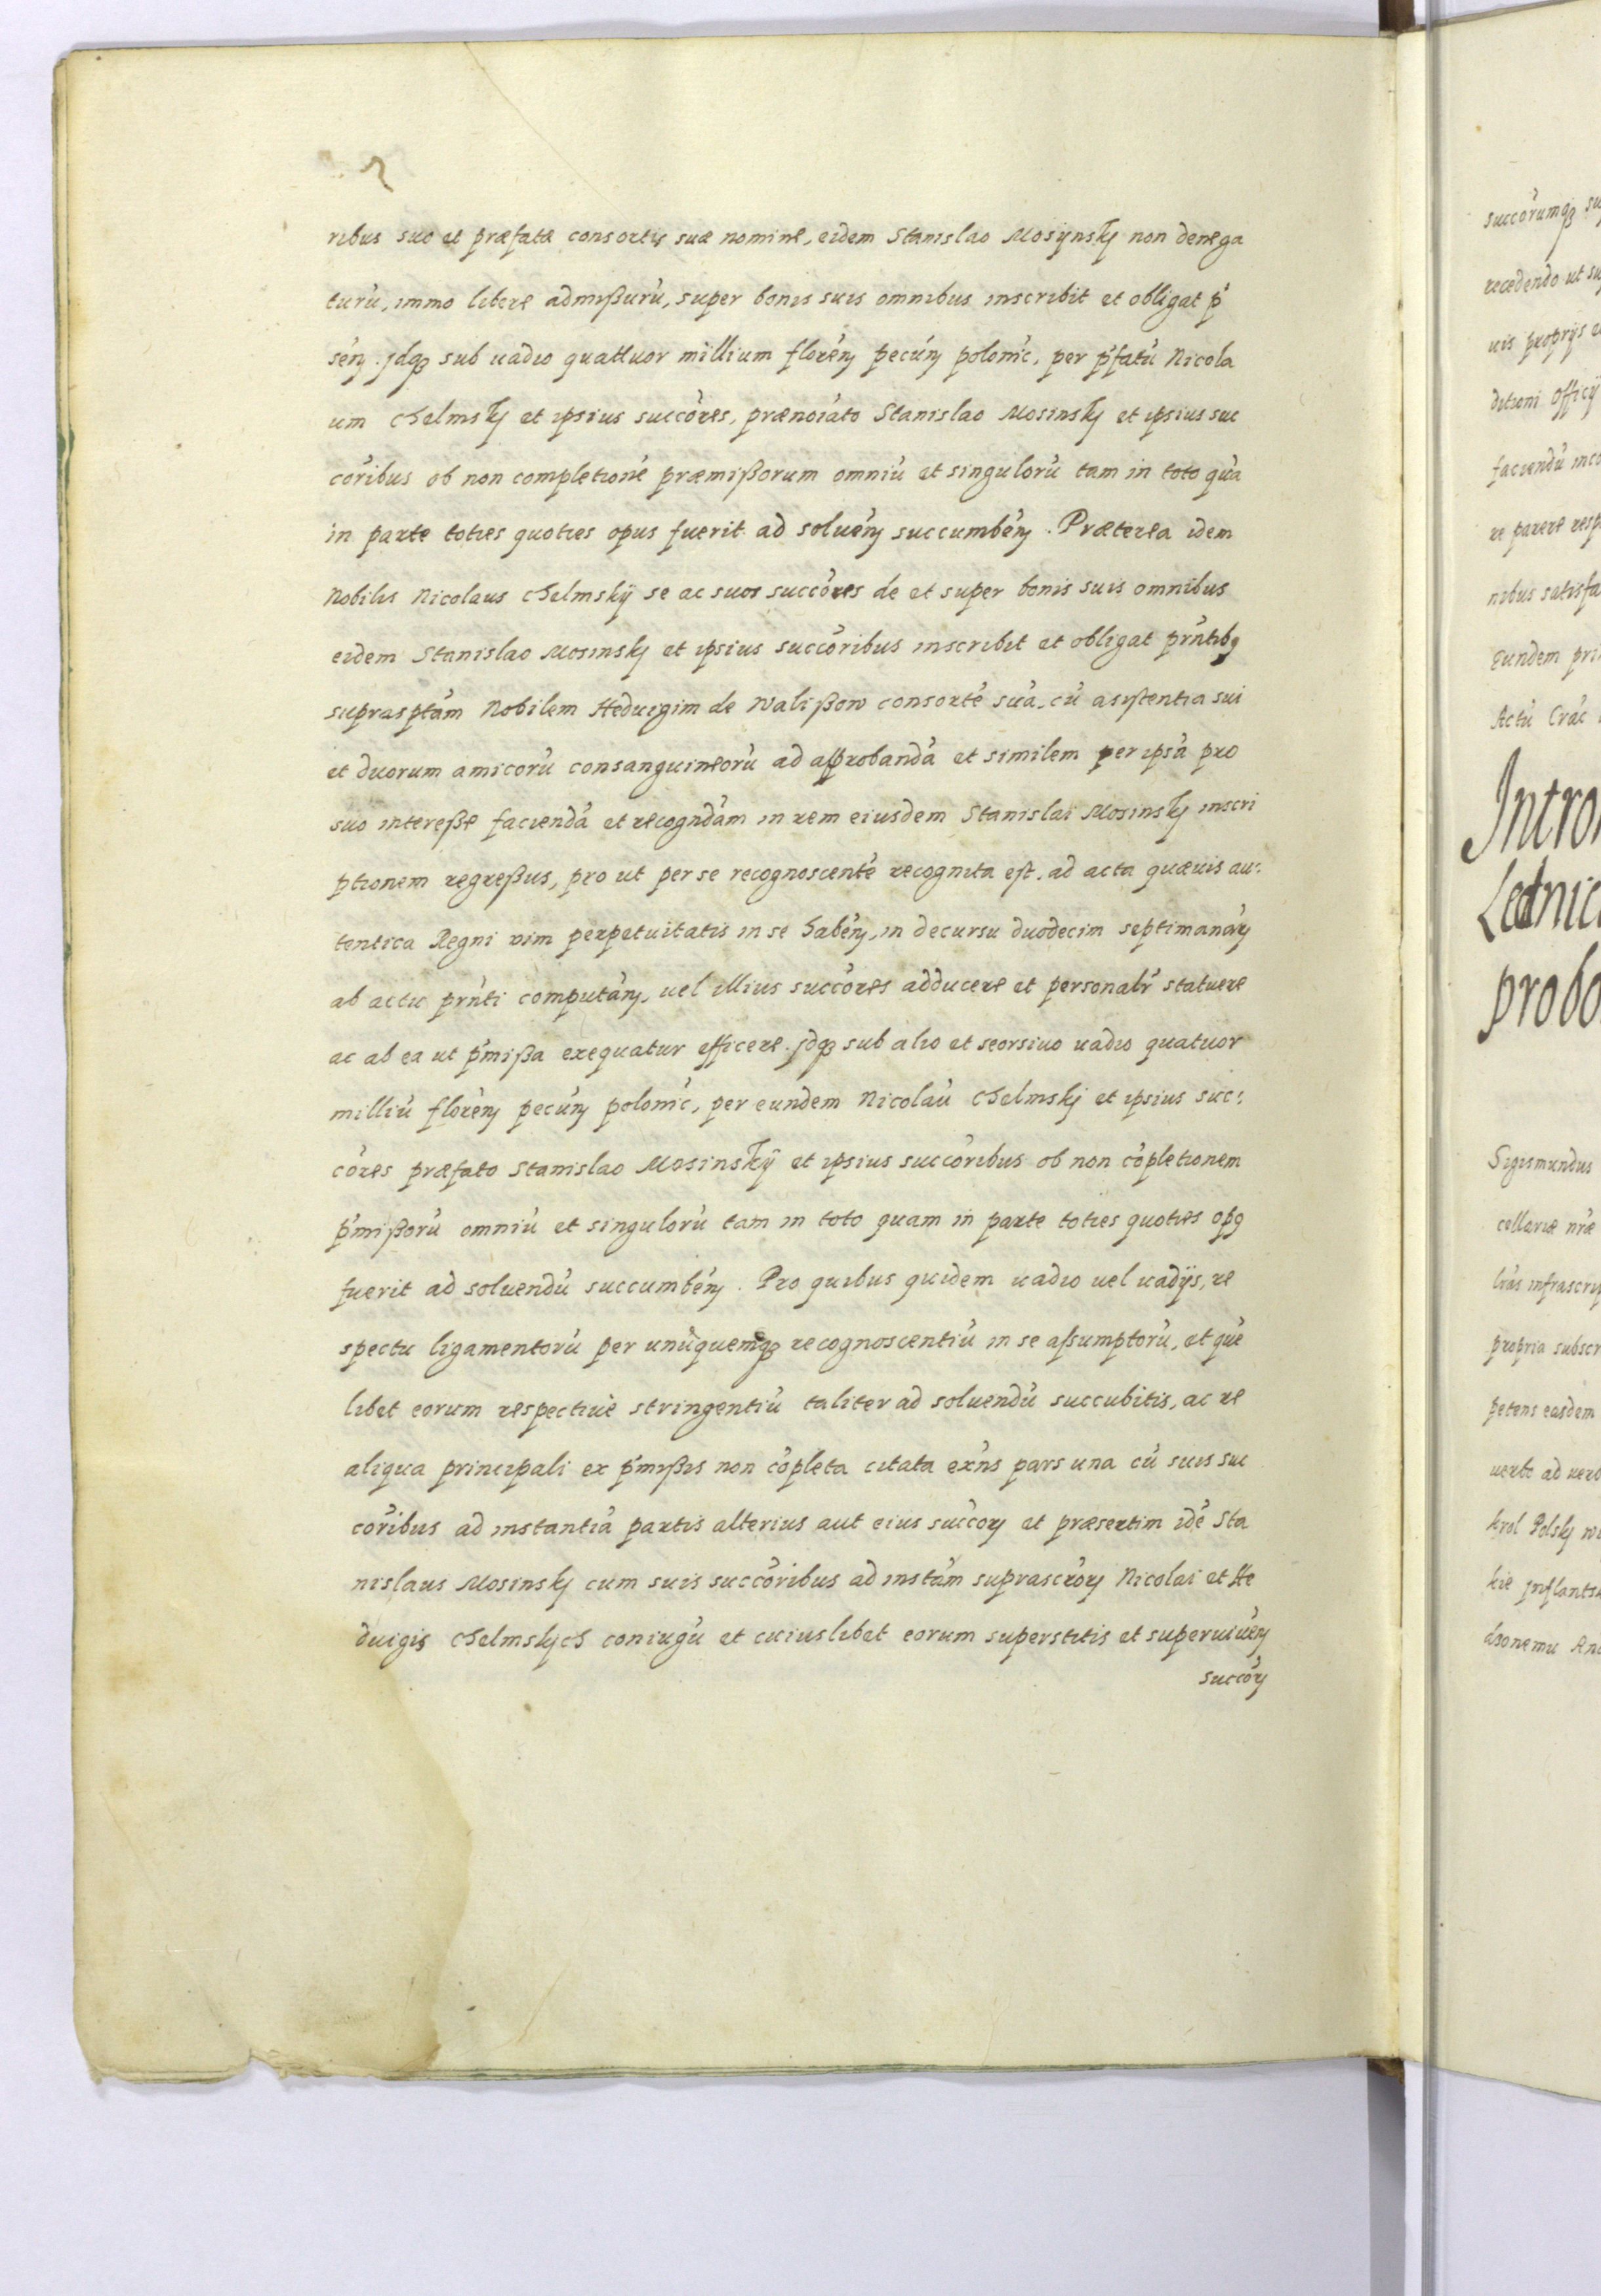 ribus suo et præfatæ consortis suæ nomine, eidem Stanislao Mosijnskÿ non denega
turu̓, immo libere admißuru̓, super bonis suis omnibus inscribit et obligat p̓
se̓ɱ. Jdqꝫ sub uadio quattuor millium flore̓ɱ pecu̓ɱ polonic̓, per p̓fatu̓ Nicola
um Chelmskÿ et ipsius succo̓res, prænoi̓ato Stanislao Mosinskÿ et ipsius suc
co̓ribus ob non completione̓ præmißorum omniu̓ et singuloru̓ tam in toto qua̓
in parte toties quoties opus fuerit ad solue̓ɱ succumbe̓ɱ. Præterea idem
Nobilis Nicolaus Chelmskÿ se ac suos succo̓res de et super bonis suis omnibus
eidem Stanislao Mosinskÿ et ipsius succo̓ribus inscribit et obligat prn̓tibꝫ
suprasp̓tam Nobilem Heduigim de Walißow consorte̓ sua̓, cu̓ asistentia sui
et duorum amicoru̓ consanguineoru̓ ad approbanda̓ et similem per ipsa̓ pro
suo interesse facienda̓ et recogn̓dam in rem eiusdem Stanislai Mosinskÿ inscri
ptionem regreßus, pro ut per se recognoscente̓ recognita est, ad acta quæuis au:
tentica Regni vim perpetuitatis in se habe̓ɱ, in decursu duodecim septimana̓ꝝ
ab actu prn̓ti computa̓ɱ, uel illius succo̓res adducere et personalr̓ statuere
ac ab ea ut p̓mißa exequatur efficere. Jdqꝫ sub alio et seorsiuo uadio quatuor
milliu̓ flore̓ɱ pecu̓ɱ polonic̓, per eundem Nicolau̓ Chelmskÿ et ipsius suc:
co̓res præfato Stanislao Mosinskÿ et ipsius succo̓ribus ob non co̓pletionem
p̓mißoru̓ omniu̓ et singuloru̓ tam in toto quam in parte toties quoties opꝫ
fuerit ad soluendu̓ succumbe̓ɱ. Pro quibus quidem uadio uel uadijs, re
spectu ligamentoru̓ per unu̓quemqꝫ recognoscentiu̓ in se assumptoru̓, et que̓
libet eorum respectiue̓ stringentiu̓ taliter ad soluendu̓ succubitis, ac re
aliqua principali ex p̓mißis non co̓pleta citata exn̓s pars una cu̓ suis suc
co̓ribus ad instantia̓ partis alterius aut eius succo̓ꝝ et præsertim ide̓ Sta
nislaus Mosinskÿ cum suis succo̓ribus ad insta̓m suprascro̓ꝝ Nicolai et He
duigis Chelmskych coniugu̓ et cuiuslibet eorum superstitis et superuiue̓ɱ
succo̓ꝝ
succo̓rumqꝫ
recedendo ut
uis proprijs
ditioni Officij
faciendu̓
re parere
nibus
Eundem
Actu̓ Crac̓
Sigismundus
cellariæ nr̓æ
propria
petens easdem
uerbo ad
krol Polsky
kie